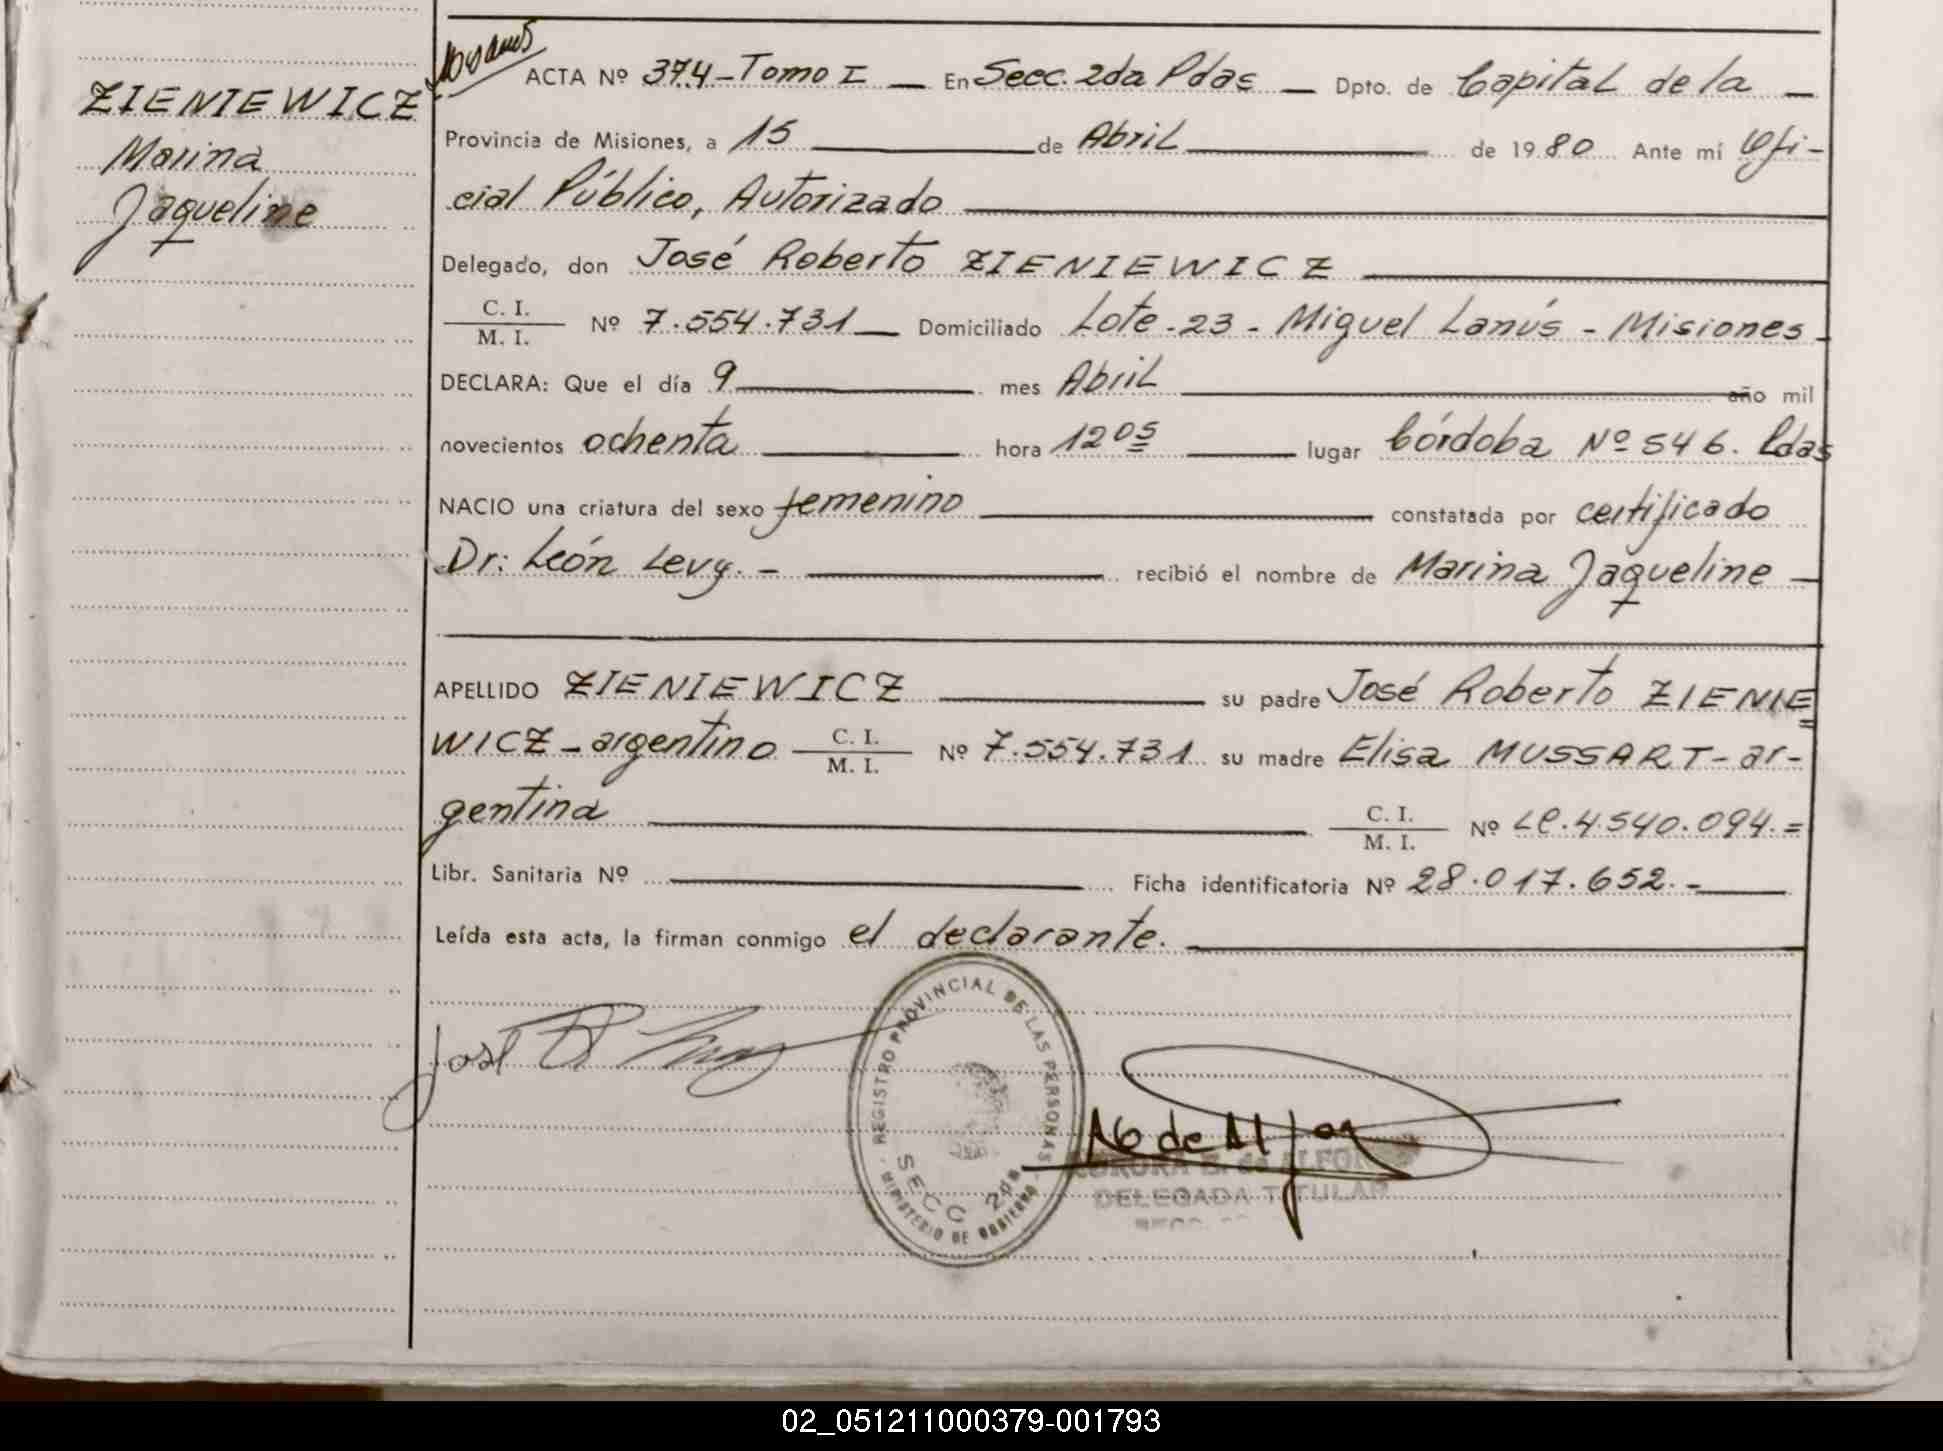 ZIENIEWICZ
Marina
Jaqueline
ACTA Nº 374 - Tomo I — En Secc. 2da Pdas — Dpto. de Capital de la —
Provincia de Misiones, a 15 de Abril de 1980 Ante mí Ofi-
cial Público, Autorizado
Delegado, don José Roberto ZIENIEWICZ
C. I.
M. I. Nº 7.554.731 — Domiciliado Lote - 23 - Miguel Lanús - Misiones -
DECLARA: Que el día 9 mes Abril año mil
novecientos ochenta hora 12 05 lugar Córdoba Nº 546. Pdas
NACIO una criatura del sexo femenino constatada por certificado
Dr: León Levy. - recibió el nombre de Marina Jaqueline —
APELLIDO ZIENIEWICZ su padre José Roberto ZIENIE
WICZ - argentino C. I. M. I. Nº 7.554.731 su madre Elisa MUSSART - ar-
gentina C. I. M. I. Nº LC. 4.540.094. =
Libr. Sanitaria Nº Ficha identificatoria Nº 28.017.652. -
Leída esta acta, la firman conmigo el declarante.
José R
REGISTRO PROVINCIAL DE LAS PERSONAS
SECC 2da
MINISTERIO DE GOBIERNO
de ALFON
DELEGADA TITULAR
02_051211000379-001793